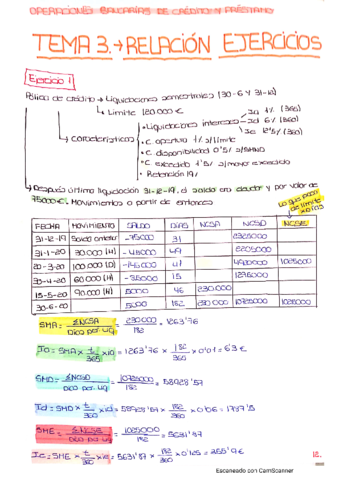 OPERACIONES BANCARIAS DE CRÉDITO Y PRÉSTAMO
TEMA 3.→ RELACIÓN EJERCICIOS
Ejercicio 1
Póliza de crédito → Liquidaciones semestrales (30-6 Y 31-12)
→ Límite 120.000 €
→ Características
• Liquidaciones intereses
Ja 1% (365)
Jd 6% (360)
Je 12'5% (360)
• C. apertura 1% s/límite
• C. disponibilidad 0'5% s/SMND
• C. excedido 1'5% s/mayor excedido
• Retención 19%
→ Después última liquidación 31-12-19, el saldo era deudor y por valor de
75000€. Movimientos a partir de entonces
Lo que pasa
de límite
x días
FECHA MOVIMIENTO SALDO DÍAS NCSA NCSD NCSE
31-12-19 Saldo anterior -75000 31 2325000
31-1-20 30.000 (H) -45000 49 2205000
20-3-20 100.000 (D) -145000 41 4920000 1025000
30-4-20 60.000 (H) -85000 15 1275000
15-5-20 90.000 (H) 5000 46 230.000
30-6-20 5000 182 230.000 10725000 1025000
SMA = ΣNCSA / Días per. liq = 230.000 / 182 = 1263'76
Ja = SMA x t/365 x ia = 1263'76 x 182/365 x 0'01 = 6'3 €
SMD = ΣNCSD / Días per. liq = 10725000 / 182 = 58928'57
Jd = SMD x t/360 x id = 58928'57 x 182/360 x 0'06 = 1787'5
SME = ΣNCSE / Días per. liq = 1025000 / 182 = 5631'87
Je = SME x t/360 x ie = 5631'87 x 182/360 x 0'125 = 355'9 €
12.
Escaneado con CamScanner